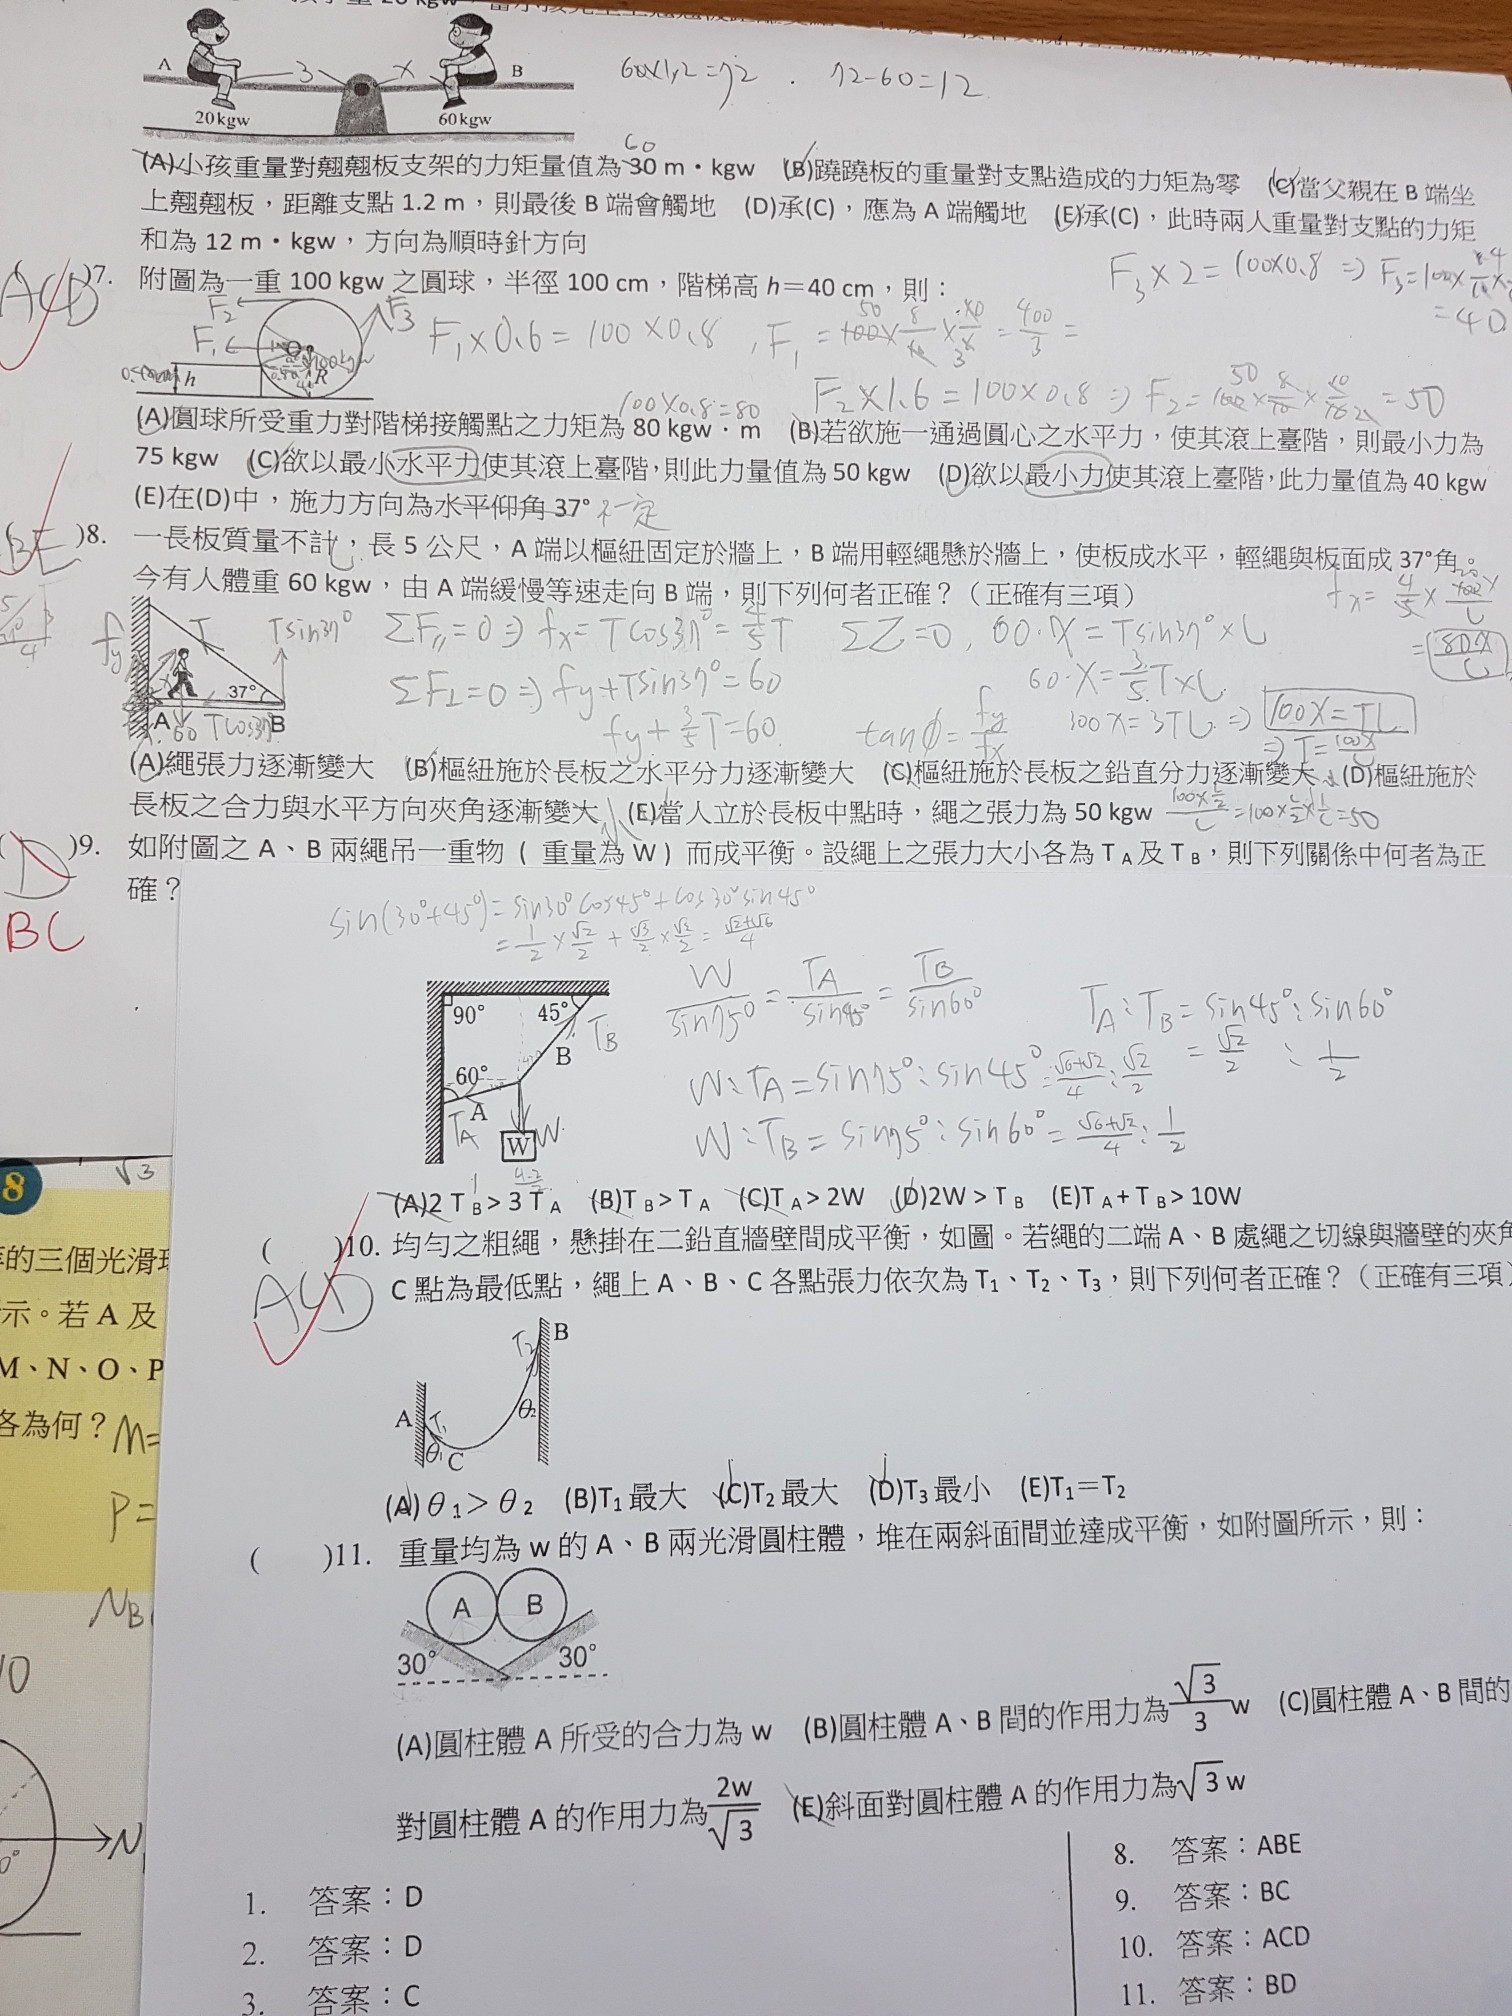 A
3
x
B
60×1.2=72 . 72-60=12
20kgw
60kgw
60
(A)小孩重量對翹翹板支架的力矩量值為 30 m・kgw (B)蹺蹺板的重量對支點造成的力矩為零 (C)當父親在 B 端坐
上翹翹板，距離支點 1.2 m，則最後 B 端會觸地 (D)承(C)，應為 A 端觸地 (E)承(C)，此時兩人重量對支點的力矩
和為 12 m・kgw，方向為順時針方向
ACD
)7. 附圖為一重 100 kgw 之圓球，半徑 100 cm，階梯高 h＝40 cm，則：
F₃×2=100×0.8
=40
F₂
F₁
F₃
F₁×0.6=100×0.8
h
R
F₂×1.6=100×0.8
=50
100×0.8=80
(A)圓球所受重力對階梯接觸點之力矩為 80 kgw・m (B)若欲施一通過圓心之水平力，使其滾上臺階，則最小力為
75 kgw (C)欲以最小水平力使其滾上臺階，則此力量值為 50 kgw (D)欲以最小力使其滾上臺階，此力量值為 40 kgw
(E)在(D)中，施力方向為水平仰角 37° 不一定
BE
)8. 一長板質量不計，長 5 公尺，A 端以樞紐固定於牆上，B 端用輕繩懸於牆上，使板成水平，輕繩與板面成 37°角。
今有人體重 60 kgw，由 A 端緩慢等速走向 B 端，則下列何者正確？（正確有三項）
fy
T
Tsin37°
37°
A
60
Tcos37°
B
ΣF⊥=0⇒fy+Tsin37°=60
fy+3/5T=60
60·X=3/5T×L
tanφ=fy/fx
300X=3TL⇒100X=TL
(A)繩張力逐漸變大 (B)樞紐施於長板之水平分力逐漸變大 (C)樞紐施於長板之鉛直分力逐漸變大 (D)樞紐施於
長板之合力與水平方向夾角逐漸變大 (E)當人立於長板中點時，繩之張力為 50 kgw
D
BC
)9. 如附圖之 A、B 兩繩吊一重物 ( 重量為 W ) 而成平衡。設繩上之張力大小各為 T A 及 T B，則下列關係中何者為正
確？
sin(30°+45°)=sin30°cos45°+cos30°sin45°
=1/2×√2/2+√3/2×√2/2=√2+√6/4
W/sin75°=TA/sin45°=TB/sin60°
90°
45°
TB
B
60°
A
TA
W
W
TA:TB=sin45°:sin60°
=√2/2:1/2
W:TA=sin75°:sin45°=√6+√2/4:√2/2
W:TB=sin75°:sin60°=√6+√2/4:1/2
(A)2 T B > 3 T A (B)T B > T A (C)T A > 2W (D)2W > T B (E)T A + T B > 10W
ACD
( )10. 均勻之粗繩，懸掛在二鉛直牆壁間成平衡，如圖。若繩的二端 A、B 處繩之切線與牆壁的夾角
C 點為最低點，繩上 A、B、C 各點張力依次為 T₁、T₂、T₃，則下列何者正確？（正確有三項）
T₂
B
A
T₁
θ₂
θ₁
C
(A) θ ₁ > θ ₂ (B)T₁ 最大 (C)T₂ 最大 (D)T₃ 最小 (E)T₁＝T₂
( )11. 重量均為 w 的 A、B 兩光滑圓柱體，堆在兩斜面間並達成平衡，如附圖所示，則：
A
B
30°
30°
(A)圓柱體 A 所受的合力為 w (B)圓柱體 A、B 間的作用力為 √3/3 w (C)圓柱體 A、B 間的
對圓柱體 A 的作用力為 2w/√3 (E)斜面對圓柱體 A 的作用力為√3 w
1. 答案：D
2. 答案：D
3. 答案：C
8. 答案：ABE
9. 答案：BC
10. 答案：ACD
11. 答案：BD
8
√3
的三個光滑
示。若 A 及
M、N、O、P
各為何？
M=
P=
NB
10
N